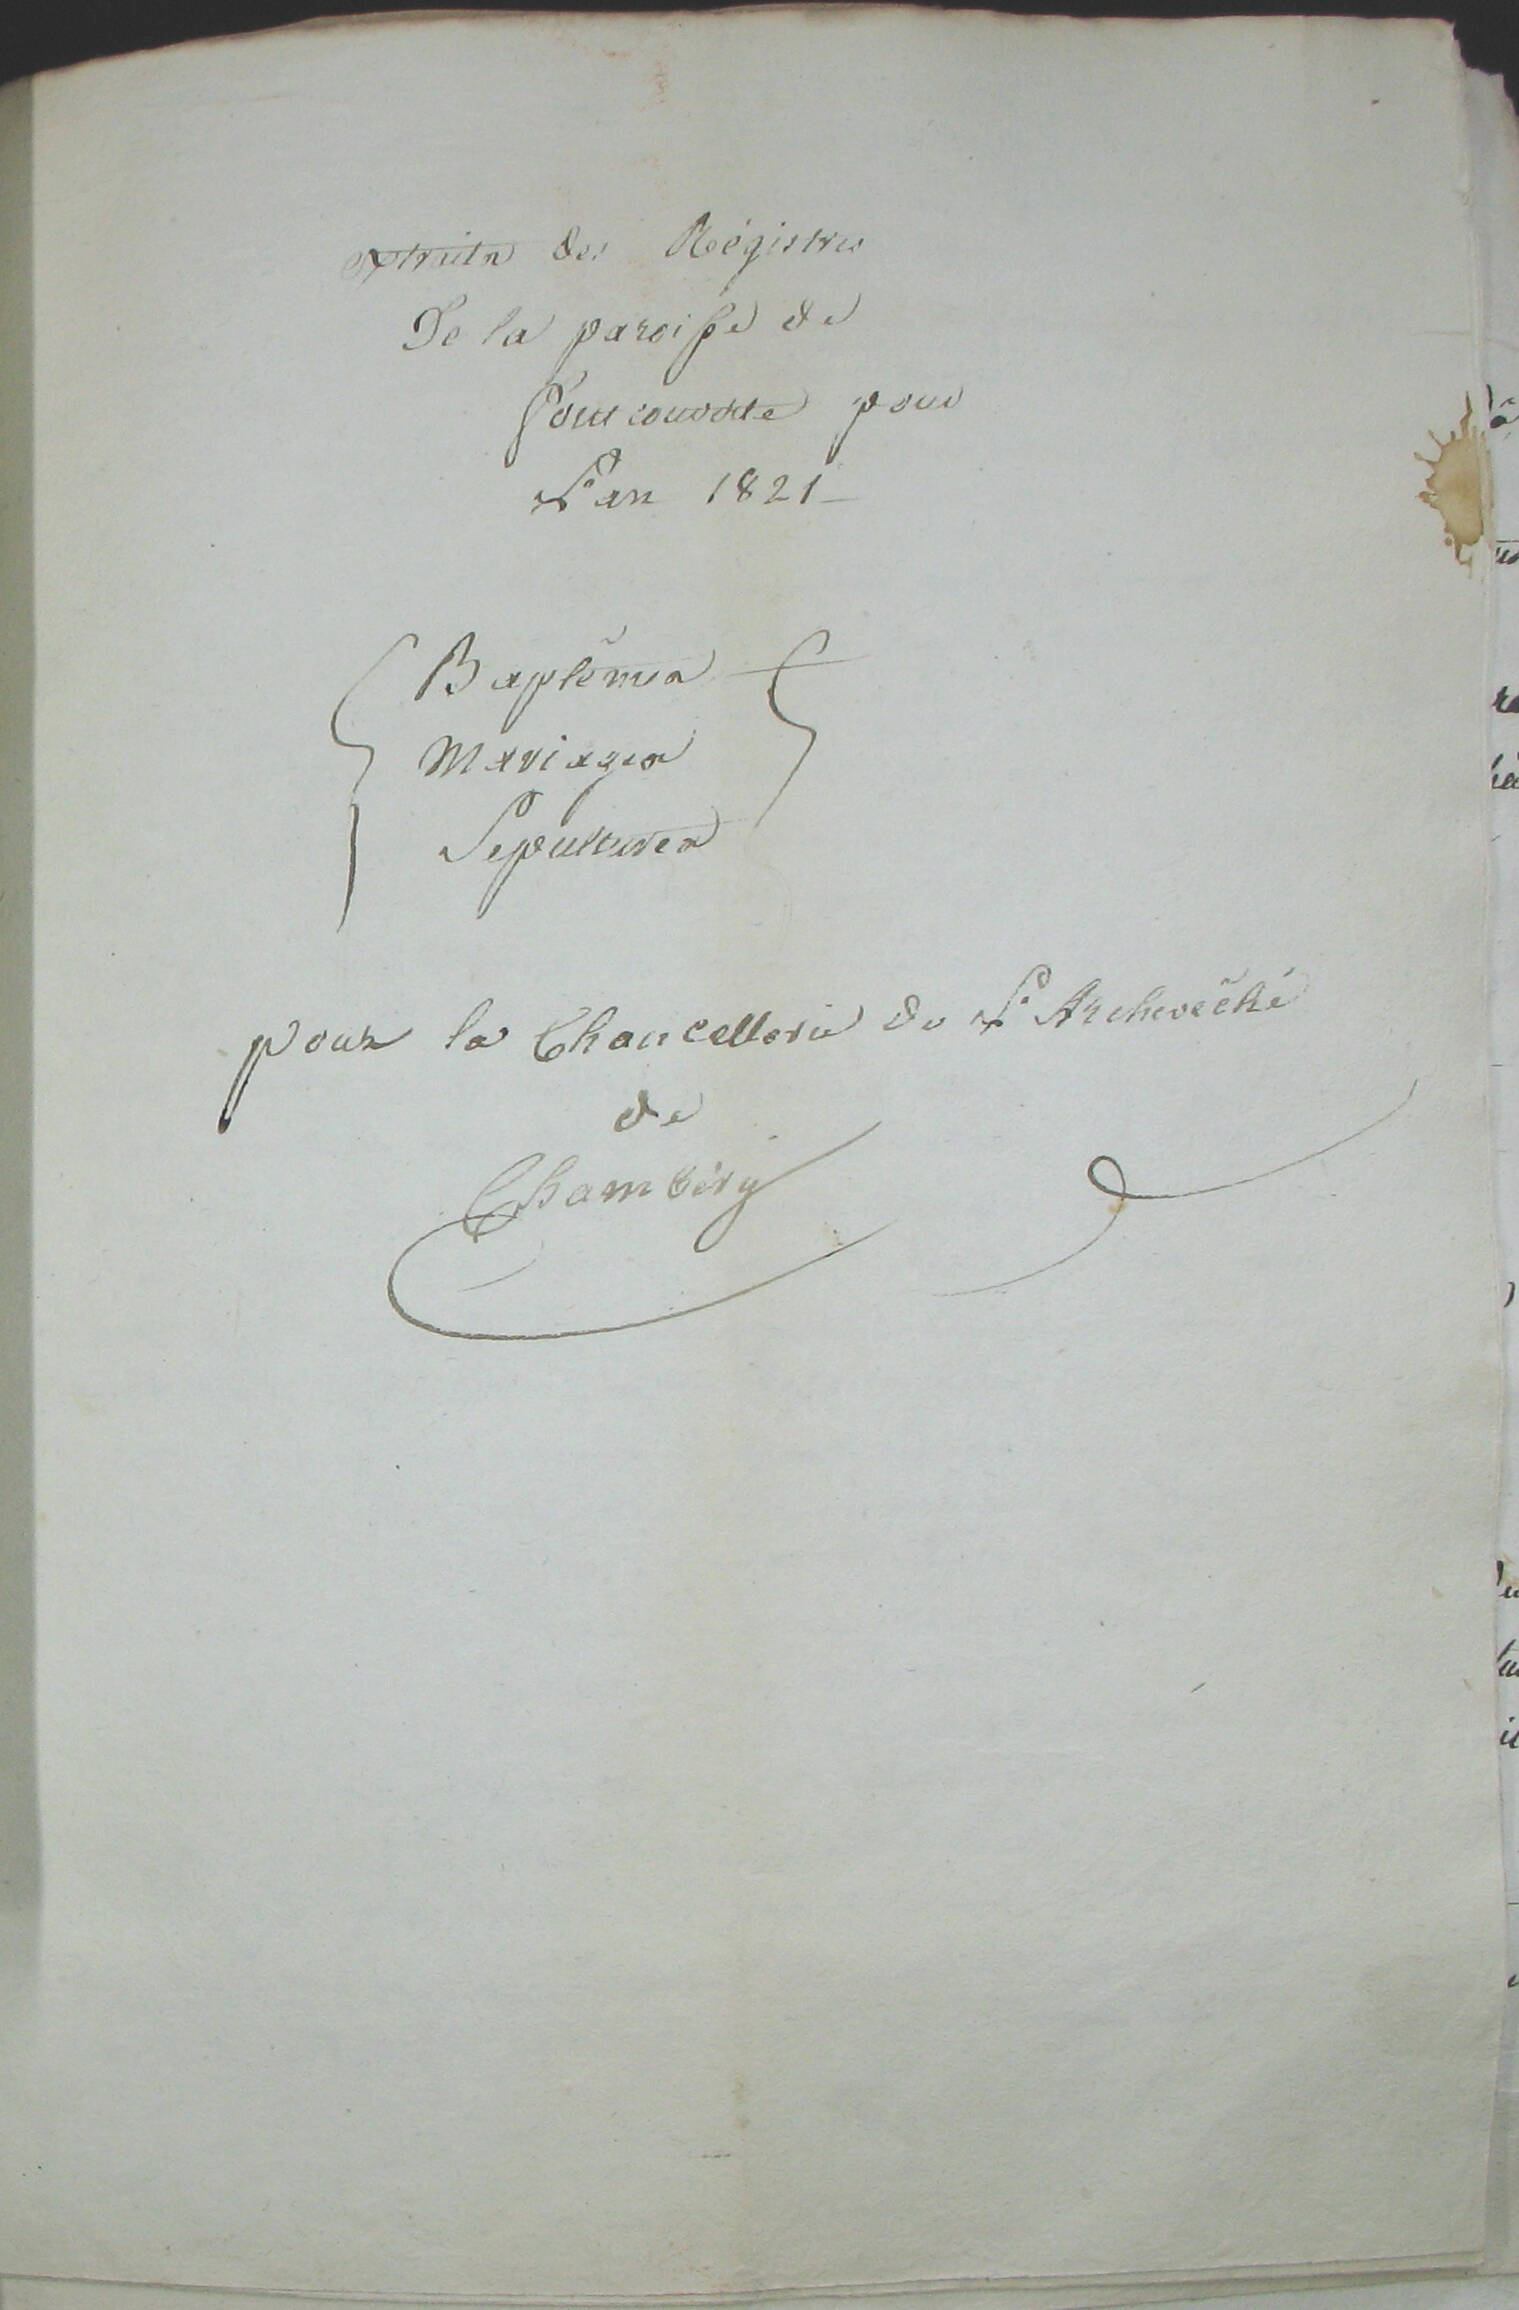 extraits des Régistres
De la paroisse de
Foncouverte pour
L'an 1821
Baptêmes
Mariages
Sepultures
pour la Chancellerie de L'Archevêché
de
Chambéry